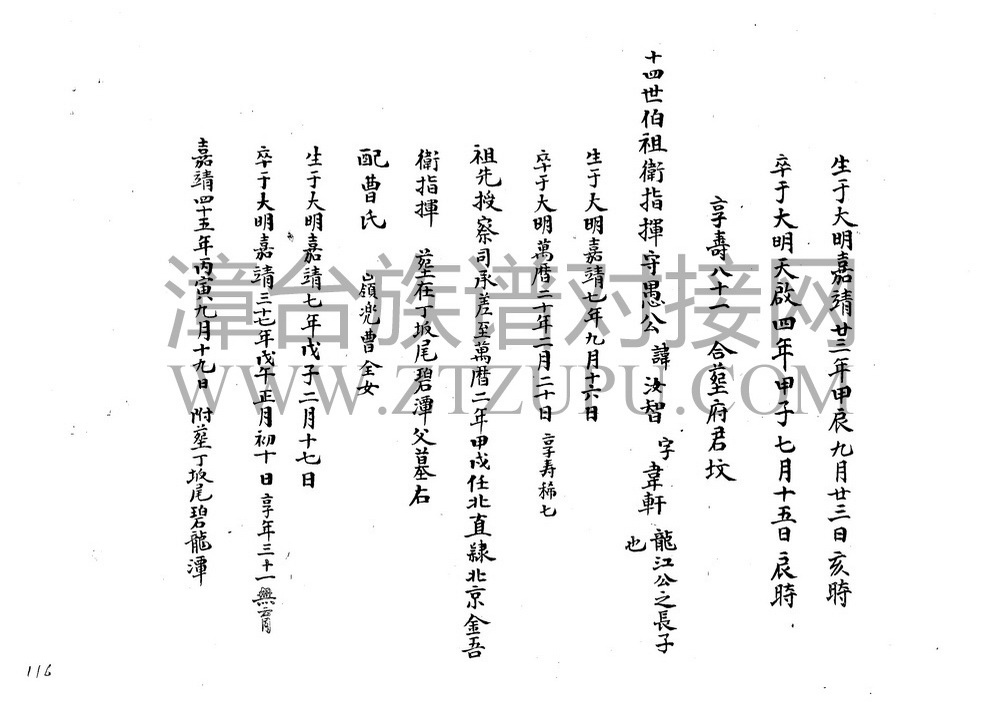 生于大明嘉靖廿三年甲辰九月廿三日亥時
卒于大明天啟四年甲子七月十五日辰時
享壽八十一 合塟府君坟
十四世伯祖衛指揮守愚公 諱汝智 字韋軒 龍江公之長子也
生于大明嘉靖七年九月十六日
卒于大明萬曆二十年二月二十日 享寿稀七
祖先授察司承差至萬曆二年甲戌任北直隸北京金吾
衛指揮 塟在丁坂尾碧潭父墓右
配曹氏 嶺兜曹全女
生于大明嘉靖七年戊子二月十七日
卒于大明嘉靖三十七年戊午正月初十日 享年三十一無育
嘉靖四十五年丙寅九月十九日 附塟丁坂尾碧龍潭
116
漳台族谱对接网
WWW.ZTZUPU.COM